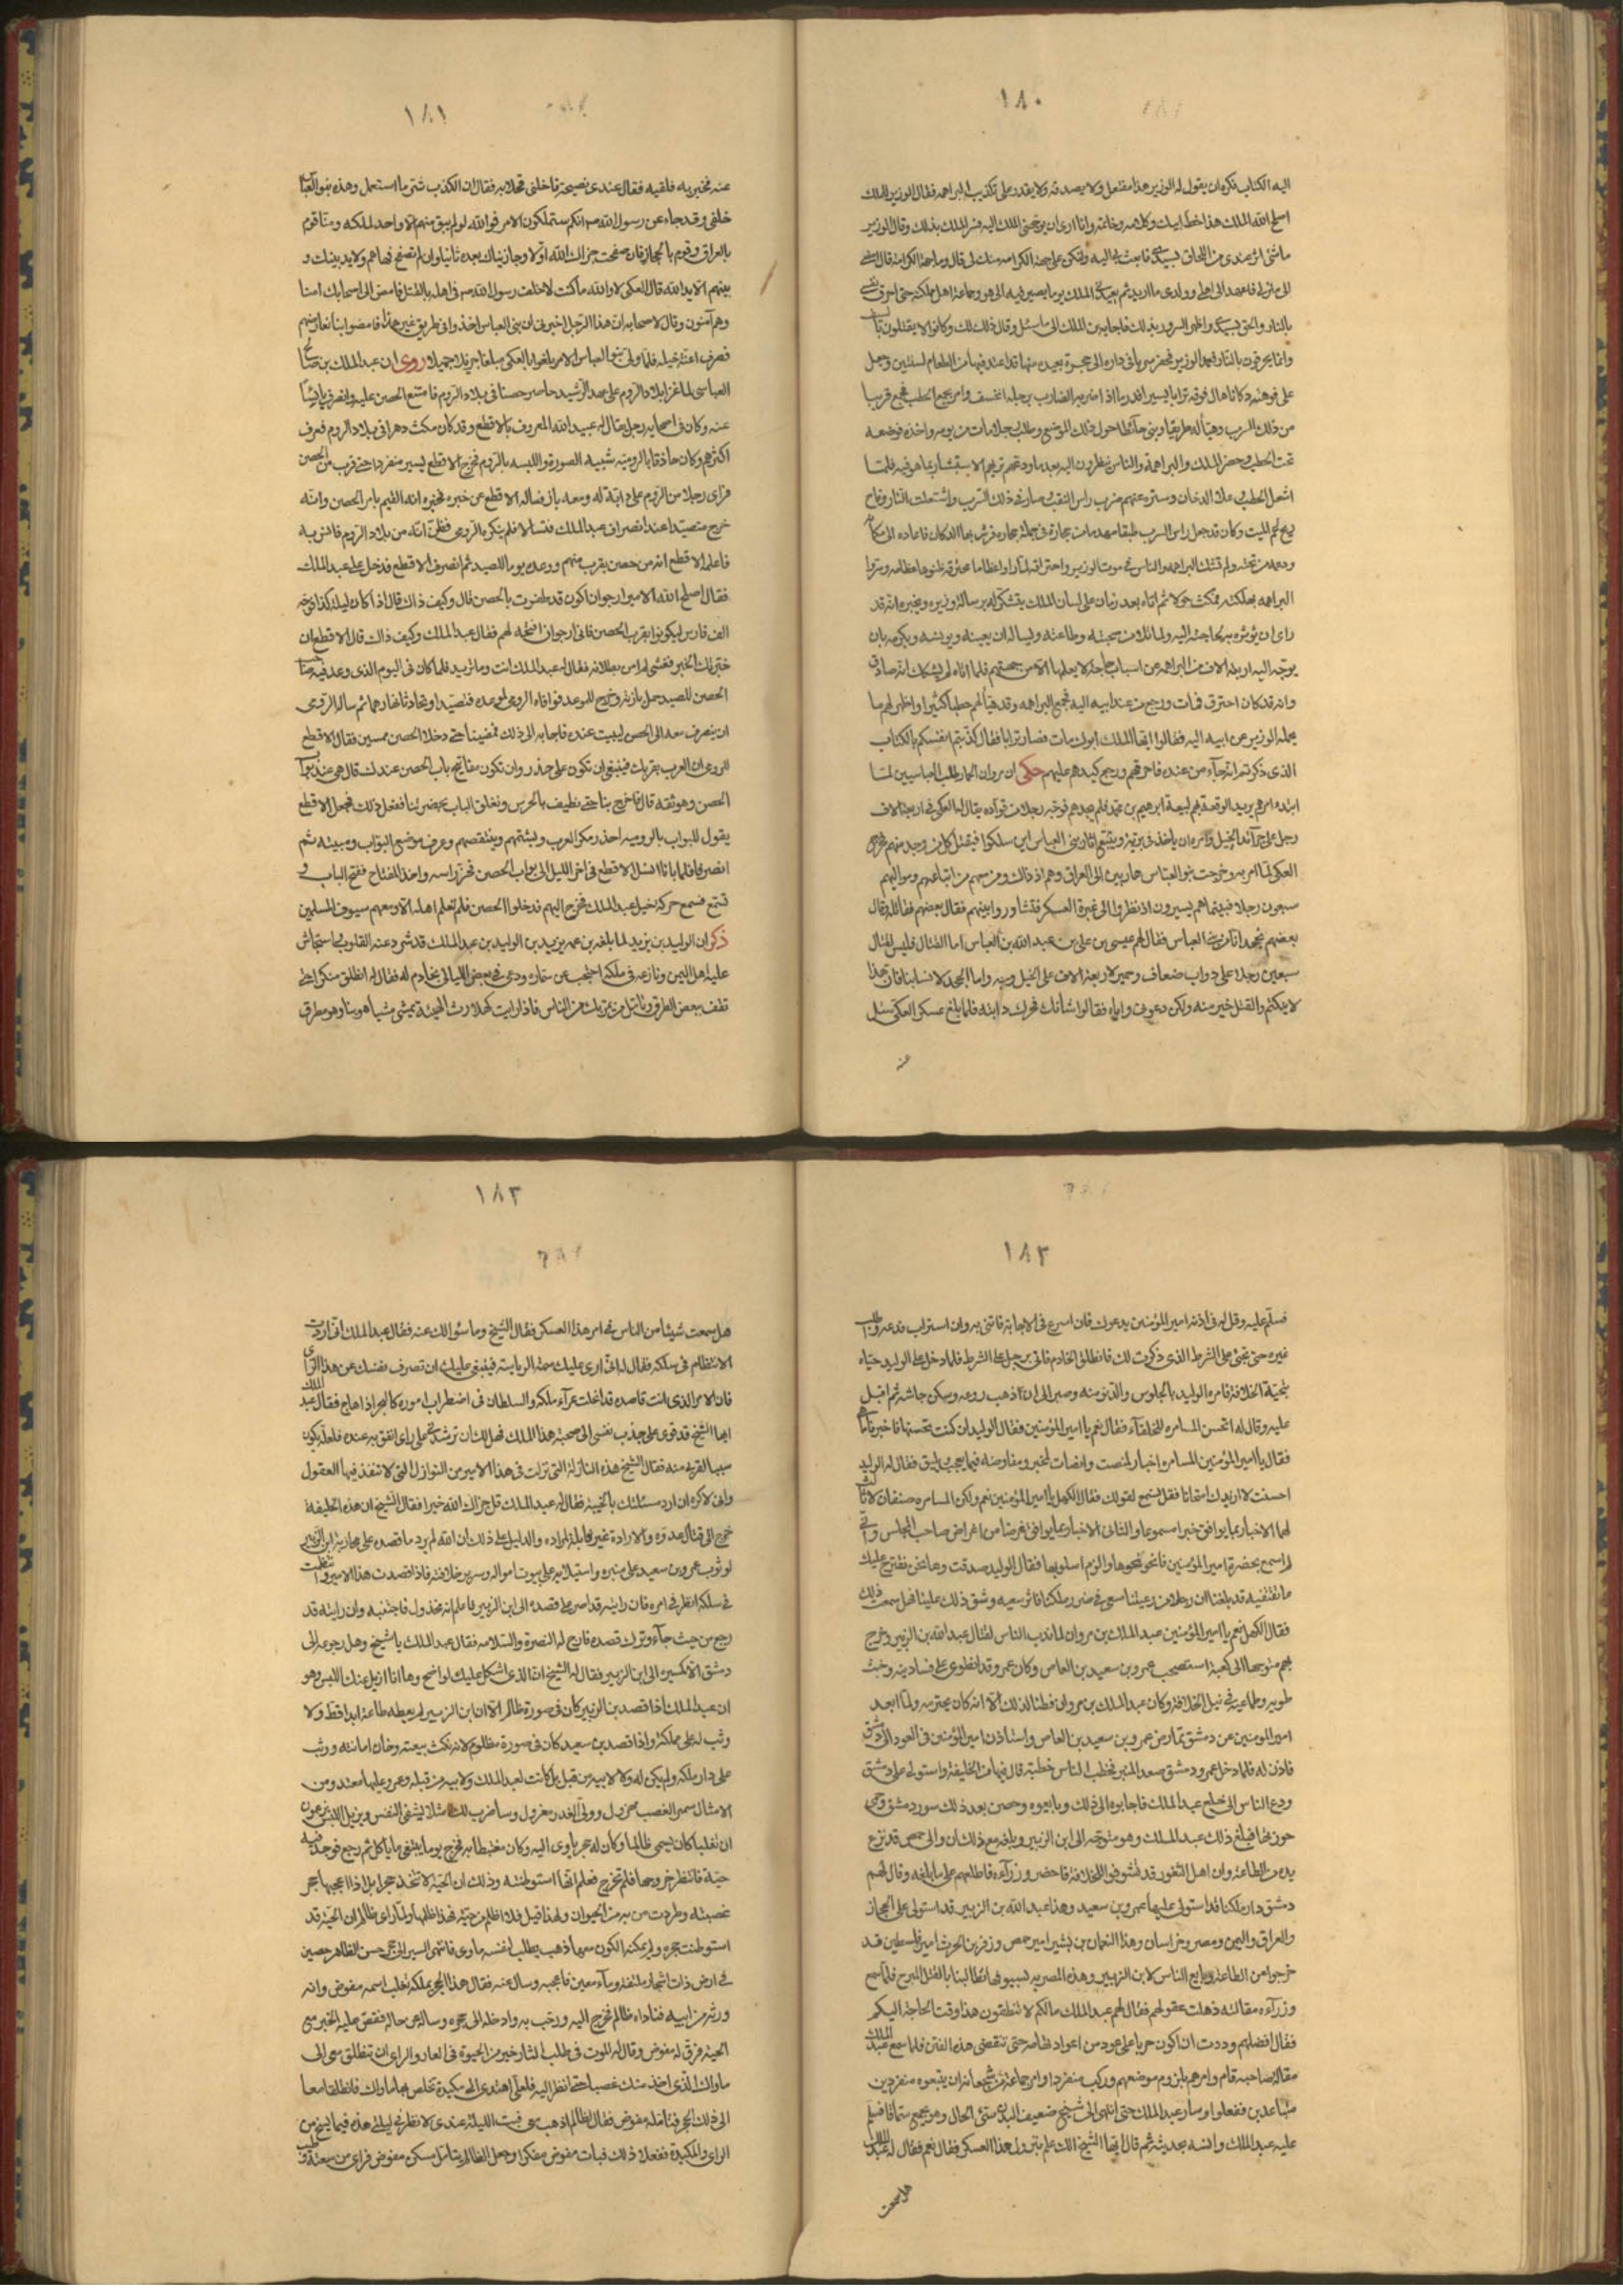 ١٨٠
اليه الكتاب فكره ان يقول له الوزير هذا مفتعل ولا يصدقه ولا يقدر على تكذيب البراهمه فقال الوزير للملك
اصلح الله الملك هذا خط ابيك وكلامه وخاتمه وانا ارى ان يوجهنى الملك اليه فسر الملك بذلك وقال الوزير
الى منزلى فاعهد الى اهلى وولدى ما اريد ثم يعين الملك يوما يصير فيه الى هو وجماعة اهل مملكته حتى احرق نفسى
بالنار والحق بسيدى واظهر السرور بذلك فاجابه ابن الملك الى ما سئل وقال ذلك لك وكانوا لا يقتلون
وانما يحرقون بالنار فعمد الوزير فحفر سربا فى داره الى حجرة بعيده منها قد اعد فيها من الطعام لسنتين وجعل
على فوهته دكانا هال فوقه ترابا يسيرا قدر ما اذا ضربه الضارب برجله انخسف وامر بجمع الحطب فجمع قريبا
من ذلك السرب وهيأ له طريقا وبنى حائطا حول ذلك الموضع وطلب رجلا مات من يومه واخذه فوضعه
تحت الحطب وحضر الملك والبراهمة والناس ينظرون اليه بعد ما ودعهم يريهم الاستبشار بما هو فيه فلما
اشعل الحطب وعلا الدخان وستره عنهم ضرب راس النقب وصار فى ذلك السرب واشتعلت النار وفاح
ريح لحم الميت وكان قد جعل راس السرب طبقا
البراهمه بهلكته فمكث حولا ثم اتاه بعد زمان على لسان الملك يتشكر له برسالة وزيره ويخبره انه قد
راى ان يوثره بحاجته اليه ولما تلا من محبته وطاعته ويساله ان يعينه ويونسه ويكرمه بان
يوجه اليه اربعة الاف من البراهمه عن اسباب حاجة لا يعلمها الا من جهتهم فلما اتاه لم يشكك انه صادق
وانه قد كان احترق فمات ورجع من عند ابيه اليه فجمع البراهمه وقد هيأ لهم حطبا كثيرا واظهر لهم ما
يحمله الوزير عن ابيه اليه فقالوا ايها الملك ابوك مات فصار ترابا فقال كذبتم انفسكم بالكتاب
الذى ذكرتم انه جآء من عنده فاحرقهم ورجع كيدهم عليهم حكى ان مروان الحمار طلب العباسيين لما
ابتدا امرهم يريد الوقعة بهم لبيعة ابرهيم بن محمد فلم يجدهم فوجه رجلا من قواده يقال له العكى فى اربعة الاف
رجل على جرآئد الخيل وامره ان ياخذ فى برية ويتتبع اثار بنى العباس اين سلكوا فيقتل كل من وجد منهم فخرج
العكى لما امر به وخرجت بنو العباس هاربين الى العراق وهم اذ ذاك ومن معهم من اتباعهم ومواليهم
سبعون رجلا فبينما هم يسيرون اذ نظروا الى غبرة العسكر فتشاوروا بينهم فقال بعضهم نقاتل وقال
بعضهم نجحد انا من بنى العباس فقال لهم عيسى بن على بن عبد الله بن العباس اما القتال فليس لقتال
سبعين رجلا على دواب ضعاف وحمير لاربعة الاف على الخيل وجه واما الجحد لانسابنا فان هذا
لا يمكنكم والقتل خير منه ولكن دعونى واياه فقالوا شأنك فحرك دابته فلما بلغ عسكر العكى سئل
عنه
١٨١
عنه فخبر به فلقيه فقال عندى نصيحة فاخلنى فخلا به فقال ان الكذب شر ما استعمل وهذه بنو العباس
خلفى وقد جاء عن رسول الله صم انكم ستملكون الامر فوالله لو لم يبق منهم الا واحد لملكه ومنا قوم
بالعراق وقوم بالحجاز فان صفحت جزاك الله اولا وجازيناك بعده ثانيا وان لم تصفح فها هم ولا يد بينك و
بينهم الا يد الله قال العكى لا والله ما كنت لاخلف رسول الله صم فى اهله بالقتل فامض الى اصحابك امنا
وهم آمنون وقال لاصحابه ان هذا الرجل اخبرنى ان بنى العباس اخذوا فى طريق غير هذا فامضوا بنا نعارضهم
فصرف اعنة خيله فلما ولى بنو العباس الامر بلغوا بالعكى مبلغا جزيلا جميلا روى ان عبد الملك بن صالح
العباسى لما غزا بلاد الروم على عهد الرشيد حاصر حصنا فى بلاد الروم فامتنع الحصن عليه وانصرف يائسا
عنه وكان فى اصحابه رجل يقال له عبيد الله المعروف بالاقطع وقد كان مكث دهرا فى بلاد الروم فعرف
اكثرهم وكان حاذقا بالروميه شبيه الصورة واللبسه بالروم فخرج الاقطع يسير منفردا حتى قرب من الحصن
فراى رجلا من الروم على دابة له ومعه باز فساله الاقطع عن خبره فخبره انه القيم بامر الحصن وانه
خرج متصيدا عند انصراف عبد الملك فتسالا فلم ينكره الرومى فظن انه من بلاد الروم فانس به
فاعلمه الاقطع انه من حصن بقرب منهم ووعده يوما للصيد ثم انصرف الاقطع فدخل على عبد الملك
فقال اصلح الله الامير ارجو ان اكون قد ظفرت بالحصن قال وكيف ذاك قال اذا كان ليلة كذا فوجه
الف فارس ليكونوا بقرب الحصن فانى ارجو ان افتحه لهم فقال عبد الملك وكيف ذاك قال الاقطع ان
خبرتك الخبر فقشى لم امن بطلانه فقال له عبد الملك انت وما تريد فلما كان فى اليوم الذى وعد فيه صاحب
الحصن للصيد حمل بازه وخرج للموعد فوافاه الرومى لموعده فتصيدا وتحادثا نهارهما ثم ساله الرومى
ان ينصرف معه الى الحصن ليبيت عنده فاجابه الى ذلك فمضينا حتى دخلا الحصن ممسين فقال الاقطع
للرومى ان العرب بقربك فينبغى ان تكون على حذر وان تكون مفاتيح باب الحصن عندك قال هى عند بواب
الحصن وهو ثقة قال فاخرج بنا حتى نطيف بالحرس ونغلق الباب بحضرتنا ففعل ذلك فجعل الاقطع
يقول للبواب بالروميه احذر مكر العرب ويشتمهم وينتقصهم وعرف موضع البواب ومبيته ثم
انصرفا فلما باتا انسل الاقطع فى اخر الليل الى بواب الحصن فحز راسه واخذ المفتاح ففتح الباب و
تسمع فسمع حركة خيل عبد الملك فخرج اليهم فدخلوا الحصن فلم تعلم اهله الا ومعهم سيوف المسلمين
ذكر ان الوليد بن يزيد لما بلغه بن عمه يزيد بن الوليد بن عبد الملك قد شرد عنه القلوب واستجاش
عليه اهل اليمن ونازعه فى ملكه احتجب عن سماره ودعى فى بعض الليالى بخادم له فقال له انطلق متنكرا حتى
تقف ببعض الطرق وتأمل من يمر بك من الناس فاذا رايت كهلا رث الهيئة يمشى مشيا هوينا وهو مطرق
١٨٢
فسلم عليه وقل له فى اذنه امير المؤمنين يدعوك فان اسرع فى الاجابة فاتنى به وان استراب فدعه واطلب
غيره حتى تجئنى على الشرط الذى ذكرت لك فانطلق الخادم فاتى برجل على الشرط فلما دخل على الوليد حياه
بتحية الخلافة فامره الوليد بالجلوس والدنو منه وصبر الى ان ذهب روعه وسكن جاشه ثم اقبل
عليه وقال له اتحسن المسامره للخلفآء فقال نعم يا امير المؤمنين فقال الوليد ان كنت تحسنها فاخبرنا ما هى
فقال يا امير المؤمنين المسامره اخبار لمنصت وانصات لمخبر ومفاوضة فيما يعجب ويليق فقال له الوليد
احسنت لا ازيدك امتحانا فقل يسمع لقولك فقال الكهل يا امير المؤمنين نعم ولكن المسامره صنفان لا ثالث
لهما الاخبار بما يوافق خبرا مسموعا والثانى الاخبار بما يوافق غرضا من اغراض صاحب المجلس وانى
لم اسمع بحضرة امير المؤمنين فانحو نحوها والزم اسلوبها فقال الوليد صدقت وها نحن نقترح عليك
ما تقتفيه قد بلغنا ان رجلا من رعيتنا سعى فى ضرر ملكنا فاثر سعيه وشق ذلك علينا فهل سمعت ذلك
فقال الكهل نعم يا امير المؤمنين عبد الملك بن مروان لما ندب الناس لقتال عبد الله بن الزبير وخرج
بهم متوجها الى كعبة استصحب عمرو بن سعيد بن العاص وكان عمرو قد انطوى على فساد نيه وخبث
طويه وطماعيه فى نيل الخلافة وكان عبد الملك بن مروان فطنا لذلك الا انه كان يحترمه ولما ابعد
امير المومنين عن دمشق تمارض عمرو بن سعيد بن العاص واستاذن امير المؤمنين فى العود الى دمشق
فاذن له فلما دخل عمرو دمشق صعد المنبر فخطب الناس خطبة قال فيها من الخليفة واستولى على دمشق
ودعى الناس الى خلع عبد الملك فاجابوه الى ذلك وبايعوه وحصن بعد ذلك سور دمشق وحمى
حوزتها فبلغ ذلك عبد الملك وهو متوجه الى ابن الزبير وبلغه مع ذلك ان والى حمص قد نزع
يده من الطاعة وان اهل الثغور قد تشوفوا للخلافة فاحضر وزرآءه فاطلعهم على ما بلغه وقال لهم
دمشق دار ملكنا قد استولى عليها عمرو بن سعيد وهذا عبد الله بن الزبير قد استولى على الحجاز
والعراق واليمن ومصر وخراسان وهذا النعمان بن بشير امير حمص وزفر بن الحرث امير فلسطين قد
خرجوا من الطاعة وبايع الناس لابن الزبير وهذه المصريه بسيوفها تطالبنا بالقتل المبرح فلما سمع
وزرآءه مقالته ذهلت عقولهم فقال لهم عبد الملك مالكم لا تنطقون هذا وقت الحاجة اليكم
فقال افضلهم وددت ان اكون حربا على عود من اعواد تهامه حتى تنقضى هذه الفتن فلما سمع عبد الملك
مقالة صاحبه قام وامرهم بلزوم موضعهم وركب منفردا وامر جماعة من شجعانه ان يتبعوه منفردين
متباعدين ففعلوا وسار عبد الملك حتى انتهى الى شيخ ضعيف البدن سئ الحال وهو يجمع سماقا فسلم
عليه عبد الملك وانسه بحديثه ثم قال ايها الشيخ الك علم بنزول هذا العسكر فقال نعم فقال له عبد الملك
هل سمعت
١٨٣
هل سمعت شيئا من الناس فى امر هذا العسكر فقال الشيخ وما سؤالك عنه فقال عبد الملك انى اردت
الانتظام فى سلكه فقال له انى ارى عليك سمة الرياسة فينبغى عليك ان تصرف نفسك عن هذا الراى
فان الامر الذى انت قاصده قد انحلت عرآء ملكه والسلطان فى اضطراب اموره كالبحر اذا هاج فقال عبد الملك
ايها الشيخ قد قوى على جذب نفسى الى صحبة هذا الملك فهل لك ان ترشدنى على راى اتفق به عنده فلعله يكون
سببا لقربى منه فقال الشيخ هذه النازلة التى نزلت فى هذا الامير من النوازل التى لا تنفذ فيها العقول
وانى لاكره ان ارد مسئلتك بالخيبه فقال له عبد الملك قل جزاك الله خيرا فقال الشيخ ان هذه الخليفة
خرج الى قتال عدوه والارادة غير قابلة لمراده والدليل على ذلك ان الله لم يرد ما قصده على محاربة ابن الزبير
لوثوب عمرو بن سعيد على منبره واستيلايه على بيوت امواله وسرير خلافته فاذا قصدت هذا الامير وانتظمت
فى سلكه انظر فى امره فان رايته قد اصر على قصده الى ابن الزبير فاعلم انه مخذول فاجتنبه وان رايته قد
رجع من حيث جآء وترك قصده فارج له النصرة والسلامه فقال عبد الملك يا شيخ وهل رجوعه الى
دمشق الا كمسيره الى ابن الزبير فقال له الشيخ ان الذى اشكل عليك لواضح وها انا ازيل عنك اللبس وهو
ان عبد الملك اذا قصد بن الزبير كان فى صورة ظالم الا ان ابن الزبير لم يعطه طاعة ابدا قط ولا
وثب له على مملكة واذا قصد بن سعيد كان فى صورة مظلوم لانه نكث بيعته وخان امانته ووثب
على دار ملكه ولم يكن له ولا لابيه من قبل بل كانت لعبد الملك ولابيه من قبله وعمرو عليها معتد ومن
الامثال سمين الغصب مهزول ووالى الغدر معزول وساضرب لك مثلا يشفى النفس ويزيل اللبس زعموا
ان ثعلبا كان يسمى ظالما وكان له جحر ياوى اليه وكان مغتبطا به فخرج يوما يبتغى ما ياكل ثم رجع فوجد فيه
حية فانتظر خروجها فلم تخرج فعلم انها استوطنته وذلك ان الحية لا تتخذ جحرا بل اذا اعجبها جحر
غصبته وطردت من به من الحيوان ولهذا قيل فلان اظلم من حية فهذا ظلمها ولما راى ظالم ان الحية قد
استوطنت جحره ولم يمكنه الكون معها ذهب يطلب لنفسه ماوى فانتهى السير الى جحر حسن الظاهر حصين
فى ارض ذات اشجار ملتفة وماء معين فاعجبه وسال عنه فقال هذا الجحر يملكه ثعلب اسمه مفوض وانه
ورثه من ابيه فناداه ظالم فخرج اليه ورحب به وادخله الى جحره وساله عن حاله فقص عليه الخبر مع
الحية فرق له مفوض وقال له الموت فى طلب الثار خير من الحيوة فى العار والراى ان تنطلق معى الى
ماواك الذى اخذ منك غصبا حتى انظر اليه فلعلى اهتدى الى مكيدة تخلص بها ماواك فانطلقا معا
الى ذلك الجحر فتامله مفوض فقال لظالم اذهب معى فبت الليلة عندى لانظر فى ليلتى هذه فيما يسنح من
الراى والمكيدة ففعلا ذلك فبات مفوض مفكرا وجعل الظالم يتامل مسكن مفوض فراى من سعته وطيب